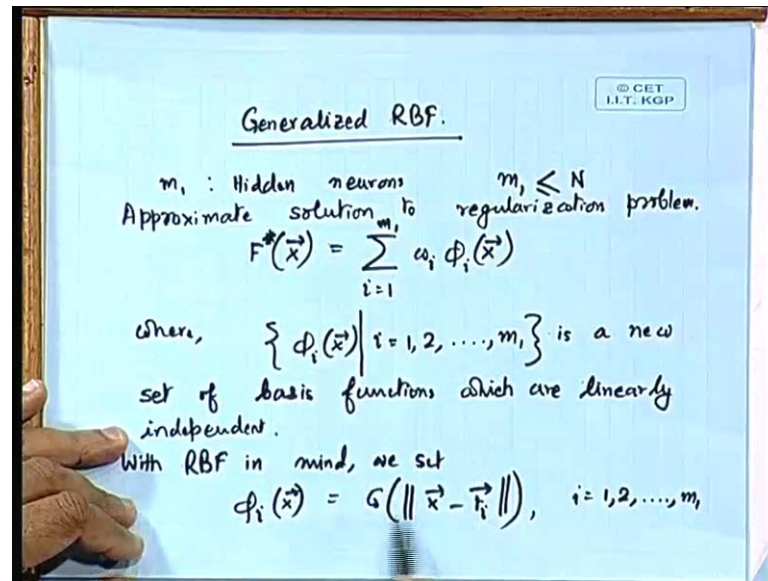 © CET
I.I.T. KGP
Generalized RBF.
m₁ : Hidden neurons m₁ ≤ N
Approximate solution to regularization problem.
F*(x⃗) = Σ_{i=1}^{m₁} ω_i φ_i(x⃗)
where, { φ_i(x⃗) | i = 1, 2, ....., m₁ } is a new
set of basis functions which are linearly
independent.
With RBF in mind, we set
φ_i(x⃗) = G(‖ x⃗ - t⃗_i ‖), i = 1, 2, ...., m₁